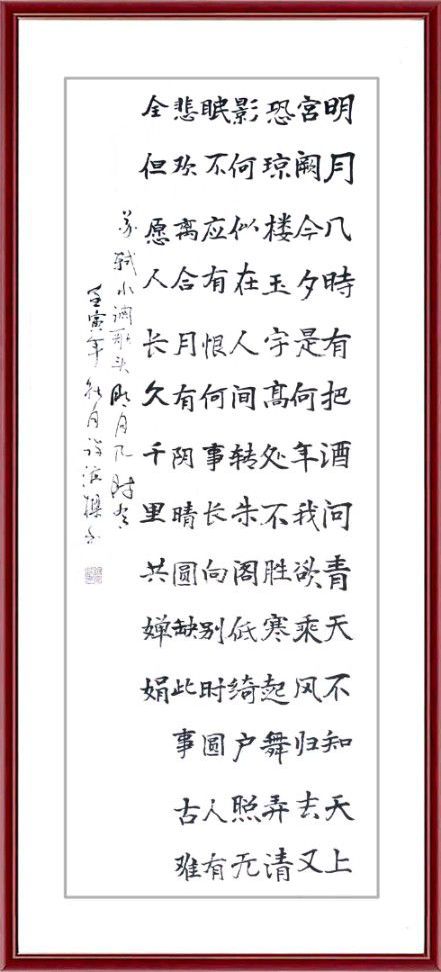 明月几時有把酒问青天不知天上
宮阙今夕是何年我欲乘风归去又
恐琼楼玉宇髙处不胜寒起舞弄清
影何似在人间转朱阁低绮户照无
眠不应有恨何事长向别时圆人有
悲欢离合月有阴晴圆缺此事古难
全但愿人长久千里共婵娟
苏轼水调歌头明月几时有
壬寅年秋月